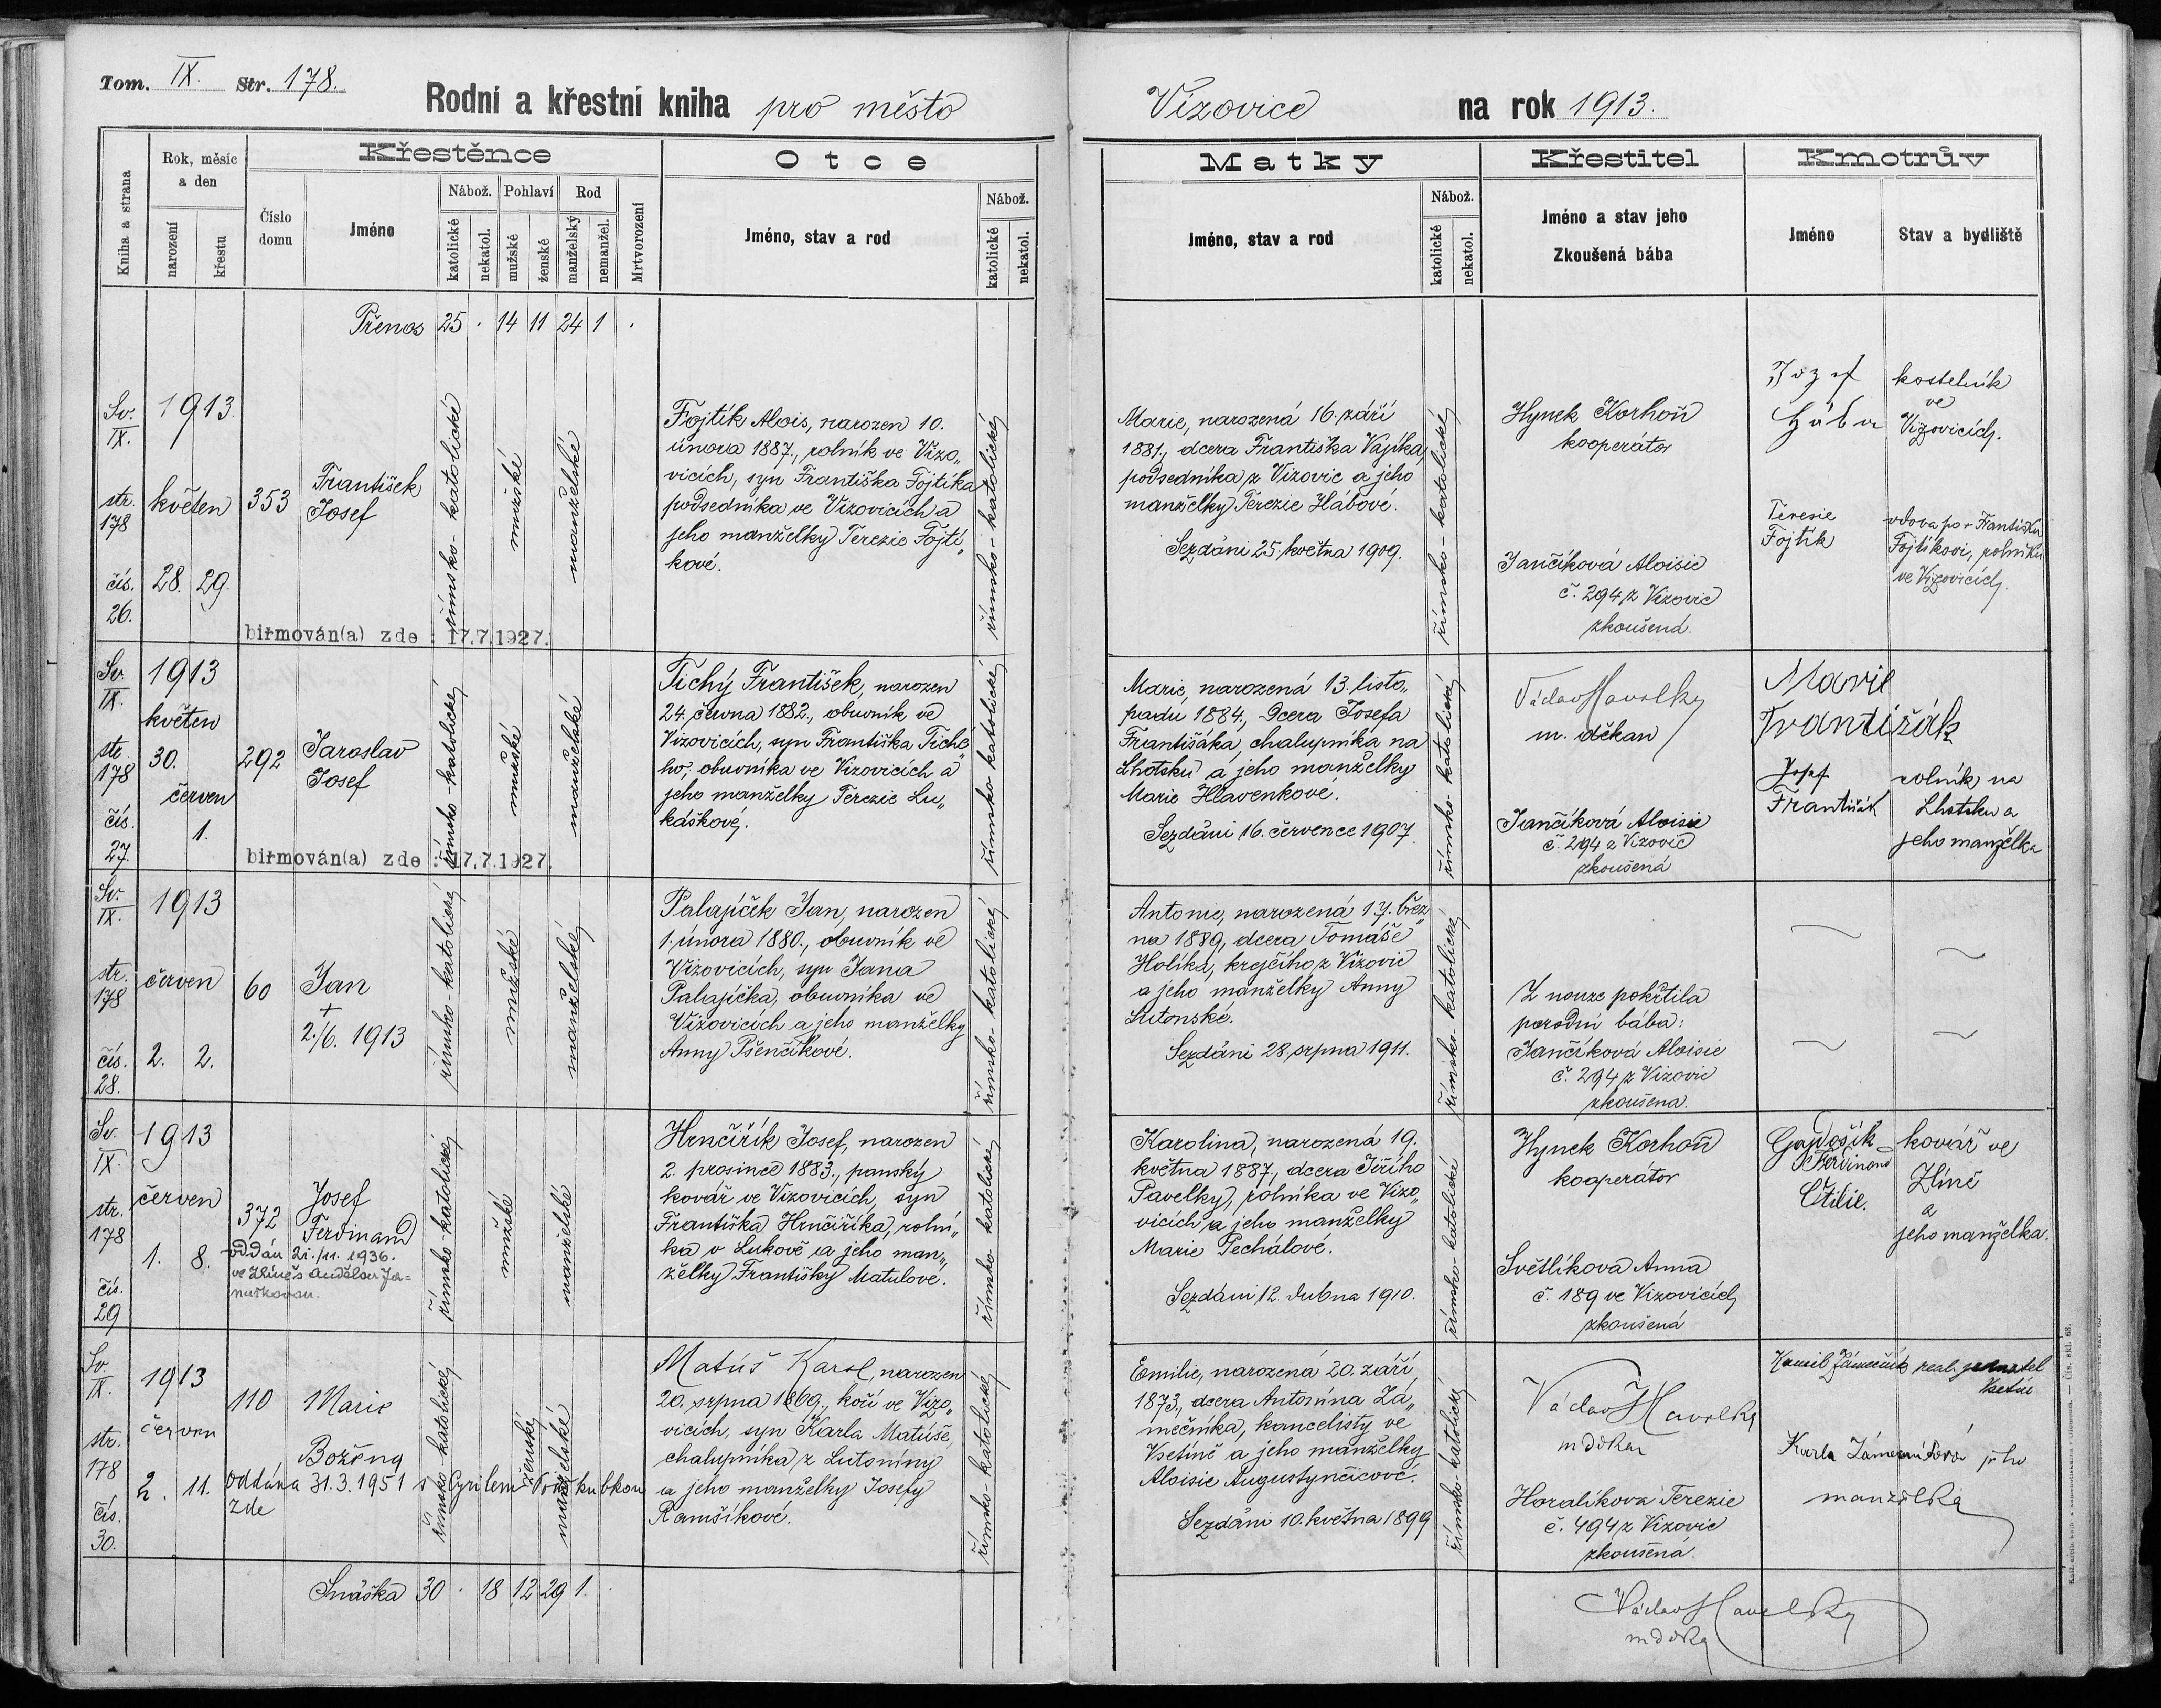 Tom. IX. Str. 178.
Rodní a křestní kniha pro město Vizovice na rok 1913.
Kniha a strana
Rok, měsíc a den
narození
křestu
Křestěnce
Číslo domu
Jméno
Nábož.
katolické
nekatol.
Pohlaví
mužské
ženské
Rod
manželský
nemanžel.
Mrtvorození
Otce
Jméno, stav a rod
Nábož.
katolické
nekatol.
Matky
Jméno, stav a rod
Nábož.
katolické
nekatol.
Křestitel
Jméno a stav jeho
Zkoušená bába
Kmotrův
Jméno
Stav a bydliště
Přenos 25 . 14 11 24 1 .
Sv. IX.
str. 178
čís. 26.
1913.
květen
28. 29.
353
František
Josef
římsko-katolické
mužské
manželské
biřmován(a) zde : 17.7.1927.
Fojtík Alois, narozen 10.
února 1887., rolník ve Vizo„
vicích, syn Františka Fojtíka
podsedníka ve Vizovicích a
jeho manželky Terezie Fojtí„
kové.
římsko-katolické
Marie, narozená 16. září
1881., dcera Františka Vajíka,
podsedníka z Vizovic a jeho
manželky Terezie Hábové.
Sezdáni 25. května 1909.
římsko-katolické
Hynek Korhoň
kooperátor
Jančíková Aloisie
č. 294 z Vizovic
zkoušená.
Josef
Hába
kostelník
ve
Vizovicích.
Teresie
Fojtík
vdova po + Františku
Fojtíkovi, rolníku
ve Vizovicích.
Sv. IX.
str. 178
čís. 27.
1913
květen
30.
červen
1.
292
Jaroslav
Josef
římsko-katolické
mužské
manželské
biřmován(a) zde : 17.7.1927.
Tichý František, narozen
24. června 1882., obuvník ve
Vizovicích, syn Františka Tiché„
ho, obuvníka ve Vizovicích a
jeho manželky Terezie Lu„
káškové.
římsko-katolické
Marie, narozená 13. listo„
padu 1884, dcera Josefa
Františáka, chalupníka na
Lhotsku a jeho manželky
Marie Hlavenkové.
Sezdáni 16. července 1907.
římsko-katolické
Václav Havelka
m. děkan
Jančíková Aloisie
č. 294 z Vizovic
zkoušená
Marie
Františák
Josef
Františák
rolník na
Lhotsku a
jeho manželka
Sv. IX.
str. 178
čís. 28.
1913
červen
2. 2.
60
Jan
+
2./6. 1913
římsko-katolické
mužské
manželské
Palajíček Jan, narozen
1. února 1880., obuvník ve
Vizovicích, syn Jana
Palajíčka, obuvníka ve
Vizovicích a jeho manželky
Anny Pšenčíkové.
římsko-katolické
Antonie, narozená 17. břez„
na 1889, dcera Tomáše
Holíka, krejčího z Vizovic
a jeho manželky Anny
Lutonské.
Sezdáni 28. srpna 1911.
římsko-katolické
Z nouze pokřtila
porodní bába:
Jančíková Aloisie
č. 294 z Vizovic
zkoušená.
Sv. IX.
str. 178
čís. 29
1913
červen
1. 8.
372
Josef
Ferdinand
oddán 21./11. 1936.
ve Zlíně s Andělou Ja=
nuškovou.
římsko-katolické
mužské
manželské
Hrnčiřík Josef, narozen
2. prosince 1883., panský
kovář ve Vizovicích, syn
Františka Hrnčiříka, rolní„
ka v Lukově a jeho man„
želky Františky Matulové.
římsko-katolické
Karolina, narozená 19.
května 1887., dcera Jiřího
Pavelky, rolníka ve Vizo„
vicích a jeho manželky
Marie Pechálové.
Sezdáni 12. dubna 1910.
římsko-katolické
Hynek Korhoň
kooperátor
Světlíková Anna
č. 189 ve Vizovicích
zkoušená
Gajdošík
Ferdinand
Otilie.
kovář ve
Zlíně
a
jeho manželka.
Sv. IX.
str. 178
čís. 30.
1913
červen
2. 11.
110
Marie
Božena
oddána 31.3.1951 s Cyrilem
zde
římsko-katolické
ženské
manželské
Matúš Karel, narozen
20. srpna 1869., kočí ve Vizo„
vicích, syn Karla Matúše,
chalupníka z Lutoniny
a jeho manželky Josefy
Ramšíkové.
římsko-katolické
Emilie, narozená 20. září
1873., dcera Antonína Zá„
mečníka, kancelisty ve
Vsetíně a jeho manželky
Aloisie Augustynčicové.
Sezdáni 10. května 1899
římsko-katolické
Václav Havelka
m děkan
Horalíkova Terezie
č. 494 z Vizovic
zkoušená.
Kamil Zámečník real. jednatel
Vsetín
Karla Zámečníková jeho
manželka
Snáška 30 . 18 12 29 1 .
Václav Havelka
m děka